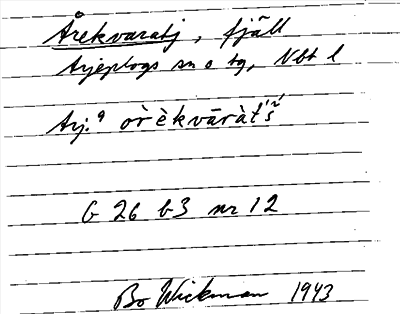 Årekvaratj, fjäll
Arjeplogs sn o tg, Nbt l
Arj. orekvāràt́š́
G 26 b3 nr 12
Bo Wickman 1943